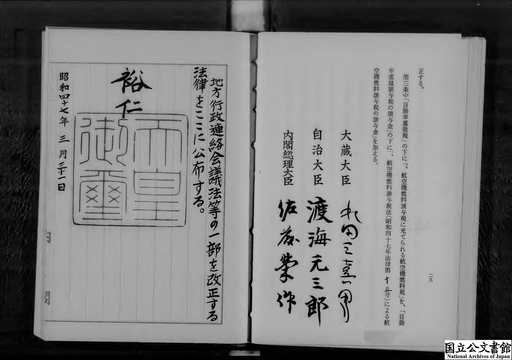 正する。
第三条中「自動車重量税」の下に「、航空機燃料譲与税に充てられる航空機燃料税」を、「自動
車重量譲与税の譲与金」の下に「、航空機燃料譲与税法(昭和四十七年法律第十三号)による航
空機燃料譲与税の譲与金」を加える。
二八
大蔵大臣
自治大臣 渡海元三郎
内閣総理大臣 佐藤榮作
地方行政連絡会議法等の一部を改正する
法律をここに公布する。
裕仁
天皇
御璽
昭和四十七年三月三十一日
国立公文書館
National Archives of Japan